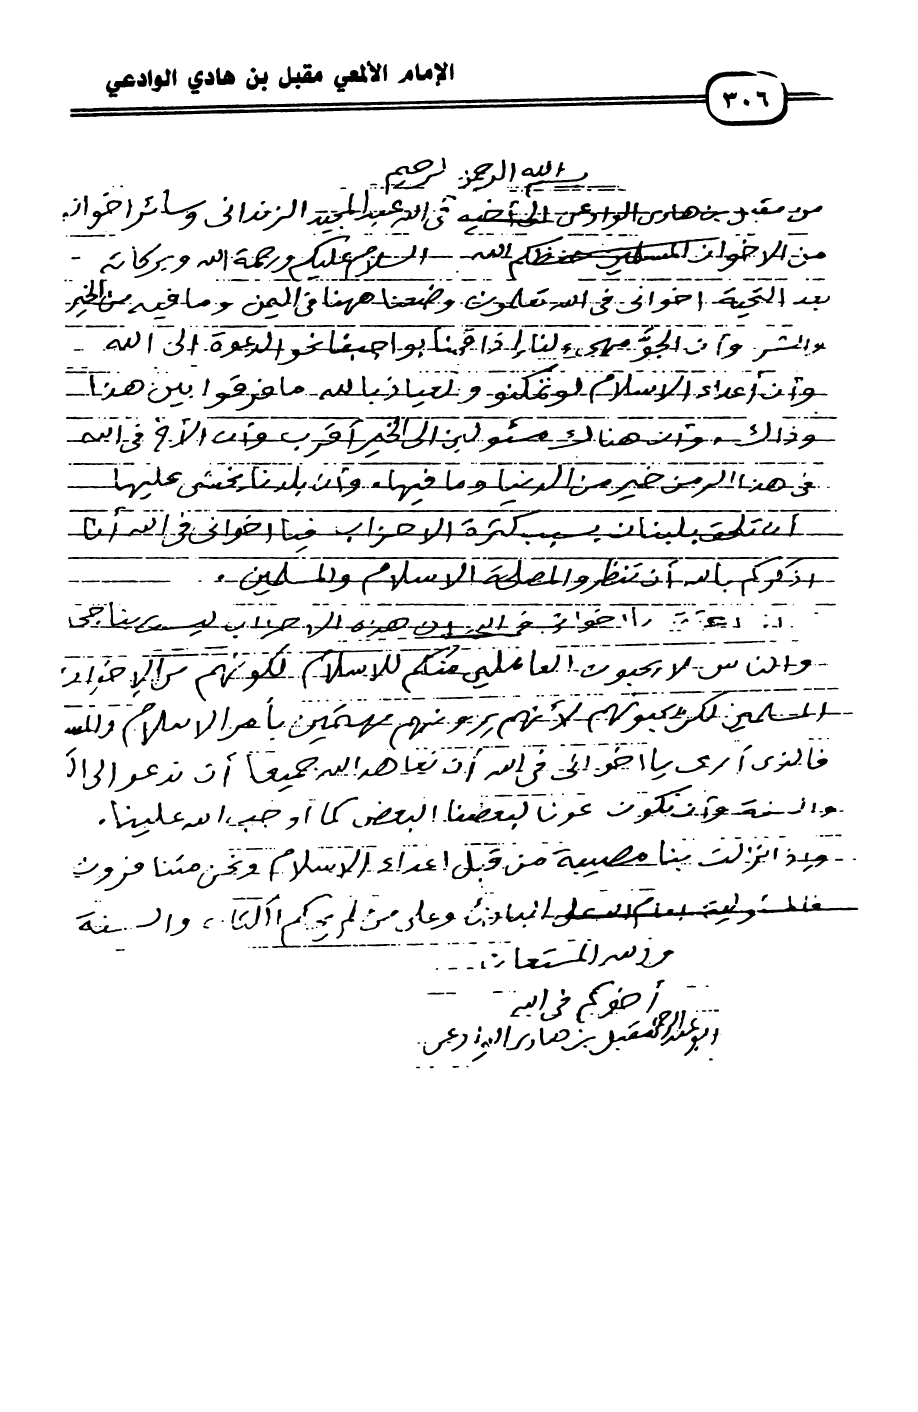 الإمام الألمعي مقبل بن هادي الوادعي
٣٠٦
بسم الله الرحمن الرحيم
من مقبل بن هادي الوادعي الى أخيه في الله عبد المجيد الزنداني وسائر اخوانه
من الاخوان المسلمين حفظكم الله السلام عليكم ورحمة الله وبركاته -
بعد التحية اخواني في الله تعلمون وضعنا ههنا في اليمن وما فيه من الخير
والشر وأن الجوَّ مهيء لنا إذا قمنا بواجبنا نحو الدعوة الى الله
وأن أعداء الاسلام لو تمكنو والعياذ بالله ما فرقوا بين هذا
وذاك، وأن هناك مسئولين الى الخير أقرب وأن الأخ في الله
في هذا الزمن خير من الدنيا وما فيها، وأن بلدنا يخشى عليها
أن تلحق بلبنان بسبب كثرة الاحزاب فيا اخواني في الله أنا
اذكركم بالله أن تنظروا لمصلحة الاسلام والمسلمين.
يا اخواني في الله إن هذه الاحزاب ليست بناجحة
والناس لا يحبون العاملين منكم للاسلام لكونهم من الإخوان
المسلمين لكن يحبونهم لأنهم يرونهم مهتمين بأمر الاسلام والمسـ
فالذى أرى يا اخواني في الله أن نعاهد الله جميعا أن ندعو الى الـ
والسنة وأن نكون عونا لبعضنا البعض كما أوجب الله علينا.
وإذا نزلت بنا مصيبة من قبل اعداء الاسلام ونحن متنافرون
فالمسئولية أمام الله على البادئ وعلى من لم يحكم الكتاب والسنة
والله المستعان
أخوكم في الله
ابو عبد الرحمن مقبل بن هادي الوادعي